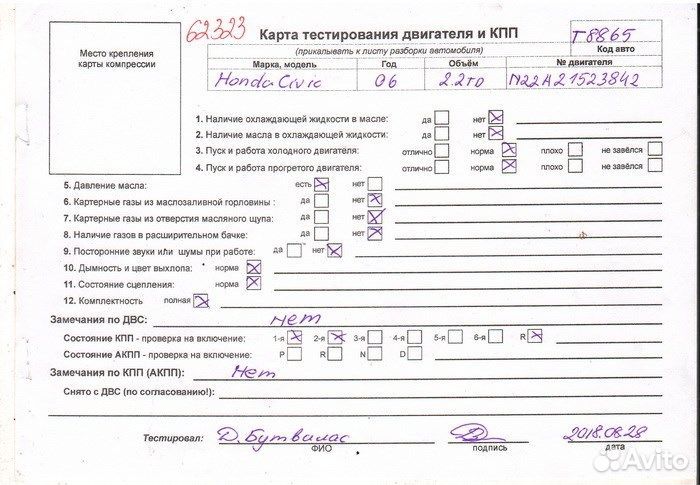 62323
Карта тестирования двигателя и КПП
T8865
(прикалывать к листу разборки автомобиля)
Код авто
Место крепления
карты компрессии
Марка, модель Год Объём № двигателя
Honda Civic 06 2.2TD N22A21523842
1. Наличие охлаждающей жидкости в масле: да нет X
2. Наличие масла в охлаждающей жидкости: да нет X
3. Пуск и работа холодного двигателя: отлично норма X плохо не завёлся
4. Пуск и работа прогретого двигателя: отлично норма X плохо не завёлся
5. Давление масла: есть X нет
6. Картерные газы из маслозаливной горловины : да нет X
7. Картерные газы из отверстия масляного щупа: да нет X
8. Наличие газов в расширительном бачке: да нет X
9. Посторонние звуки или шумы при работе: да нет X
10. Дымность и цвет выхлопа: норма X
11. Состояние сцепления: норма X
12. Комплектность полная X
Замечания по ДВС: Нет
Состояние КПП - проверка на включение: 1-я X 2-я X 3-я 4-я 5-я 6-я R X
Состояние АКПП - проверка на включение: P R N D
Замечания по КПП (АКПП): Нет
Снято с ДВС (по согласованию!):
Тестировал: Д. Бутвилас 2018.08.28
ФИО подпись дата
Avito